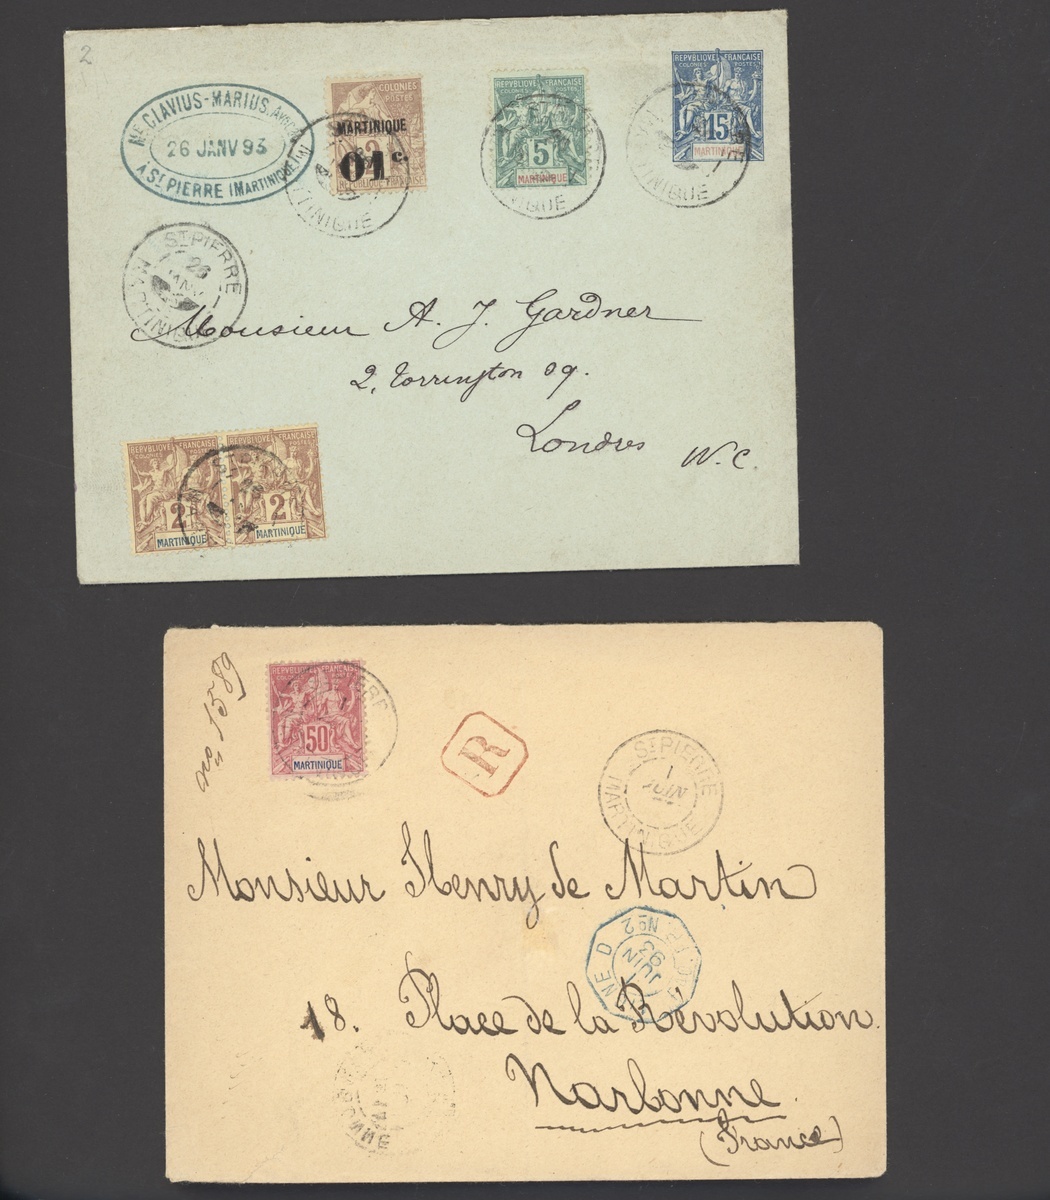 2
Me CLAVIUS-MARIUS,
26 JANV 93
A St PIERRE (MARTINIQUE)
COLONIES
POSTES
MARTINIQUE
01c.
REPVBLIQVE FRANÇAISE
COLONIES POSTES
5
MARTINIQUE
REPVBLIQVE FRANÇAISE
COLONIES POSTES
15
MARTINIQUE
TINIQUE
ST PIERRE
26
JANV
MARTINIQUE
Monsieur A. J. Gardner
2, Torrington sq.
Londres W.C.
REPVBLIQVE FRANÇAISE
2
MARTINIQUE
REPVBLIQVE FRANÇAISE
2
MARTINIQUE
No 1589
REPVBLIQVE FRANÇAISE
COLONIES POSTES
50
MARTINIQUE
R
ST PIERRE
1
JUIN
MARTINIQUE
Monsieur Henry de Martin
LIGNE D
No2
1
JUIN
93
18. Place de la Révolution.
Narbonne.
(France)